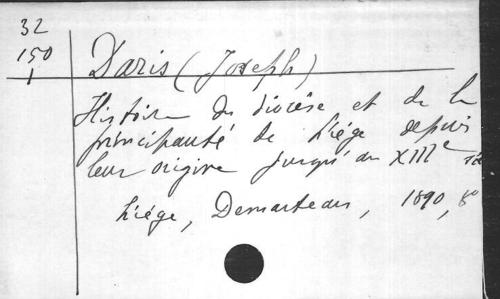 32
150
1
Daris (Joseph)
Histoire du diocèse et de la
principauté de Liége depuis
leur origine jusqu'au XIIIe siè
Liége, Demarteau, 1890, 8°